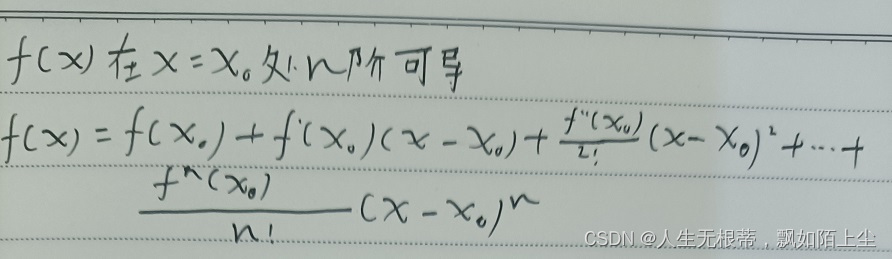 f(x) 在 x = x₀ 处 n 阶可导
f(x) = f(x₀) + f'(x₀)(x - x₀) + f''(x₀)/2! (x - x₀)² + ... +
fⁿ(x₀)/n! (x - x₀)ⁿ
CSDN @人生无根蒂，飘如陌上尘